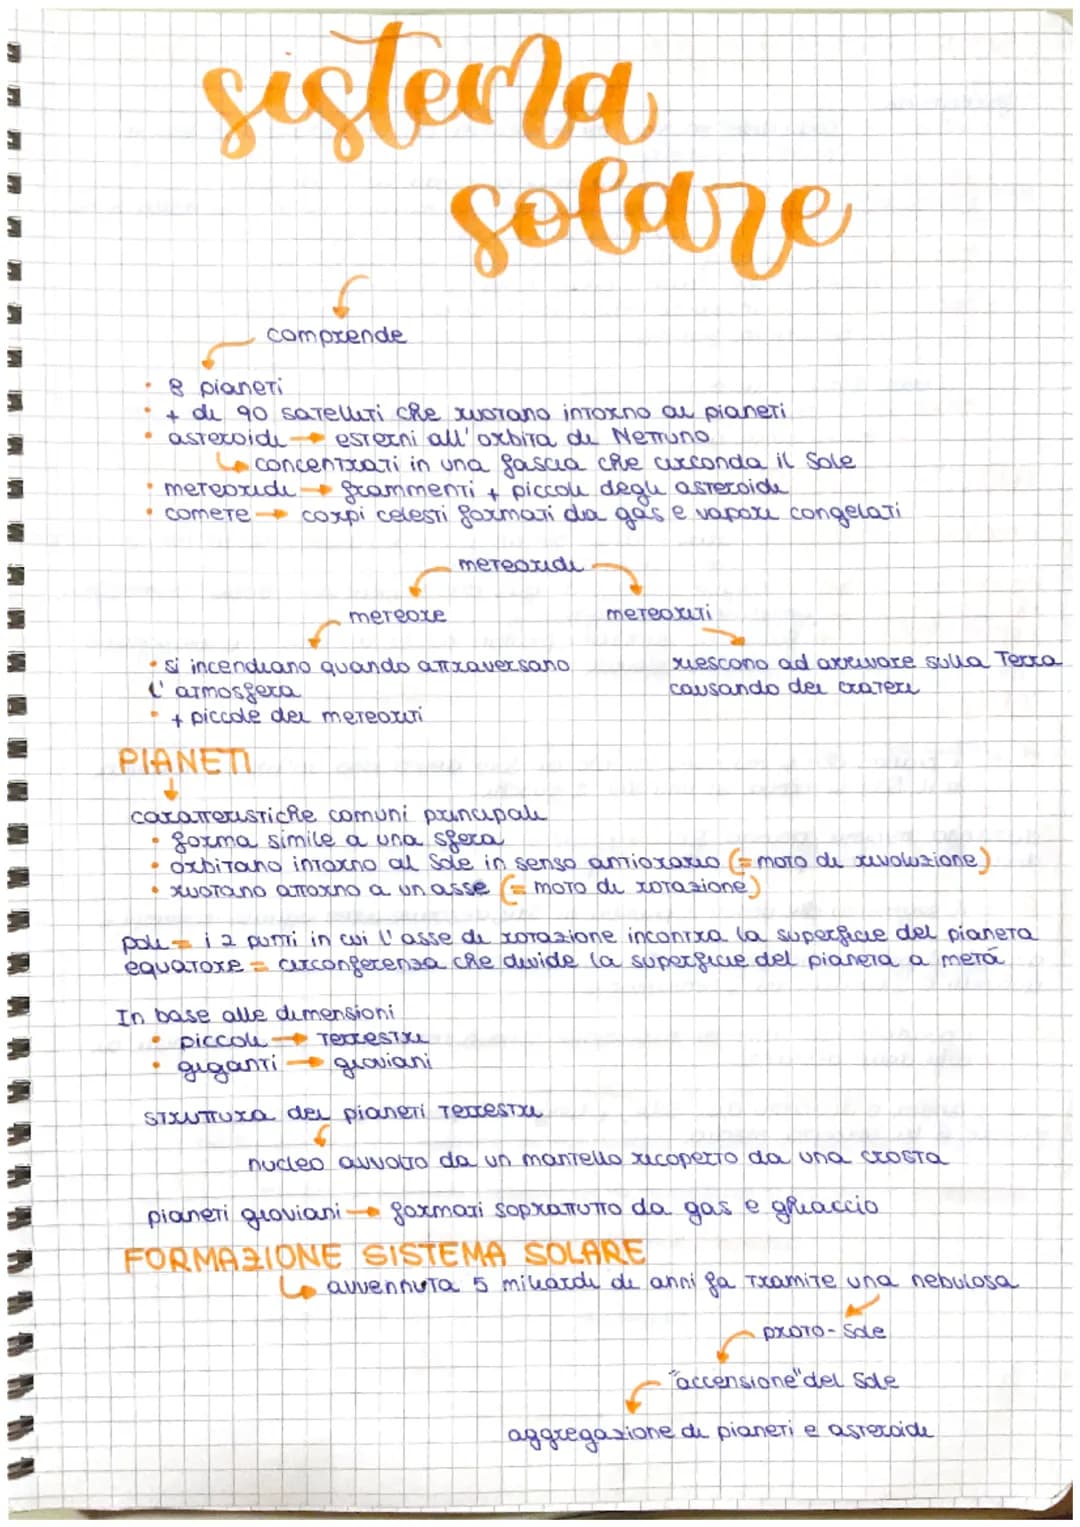 sistema
solare
comprende
• 8 pianeti
• + di 90 satelliti che ruotano intorno ai pianeti
• asteroidi → esterni all'orbita di Nettuno
↳ concentrati in una fascia che circonda il Sole
• meteoridi → frammenti + piccoli degli asteroidi
• comete → corpi celesti formati da gas e vapori congelati
meteoridi
meteore meteoriti
• si incendiano quando attraversano riescono ad arrivare sulla Terra
l'atmosfera causando dei crateri
• + piccole dei meteoriti
PIANETI
↓
caratteristiche comuni principali
• forma simile a una sfera
• orbitano intorno al Sole in senso antiorario (= moto di rivoluzione)
• ruotano attorno a un asse (= moto di rotazione)
poli = i 2 punti in cui l'asse di rotazione incontra la superficie del pianeta
equatore = circonferenza che divide la superficie del pianeta a metà
In base alle dimensioni
• piccoli → terrestri
• giganti → gioviani
struttura dei pianeti terrestri
nucleo avvolto da un mantello ricoperto da una crosta
pianeti gioviani → formati sopratutto da gas e ghiaccio
FORMAZIONE SISTEMA SOLARE
↳ avvennuta 5 miliardi di anni fa tramite una nebulosa
proto-Sole
"accensione" del Sole
aggregazione di pianeti e asteroidi